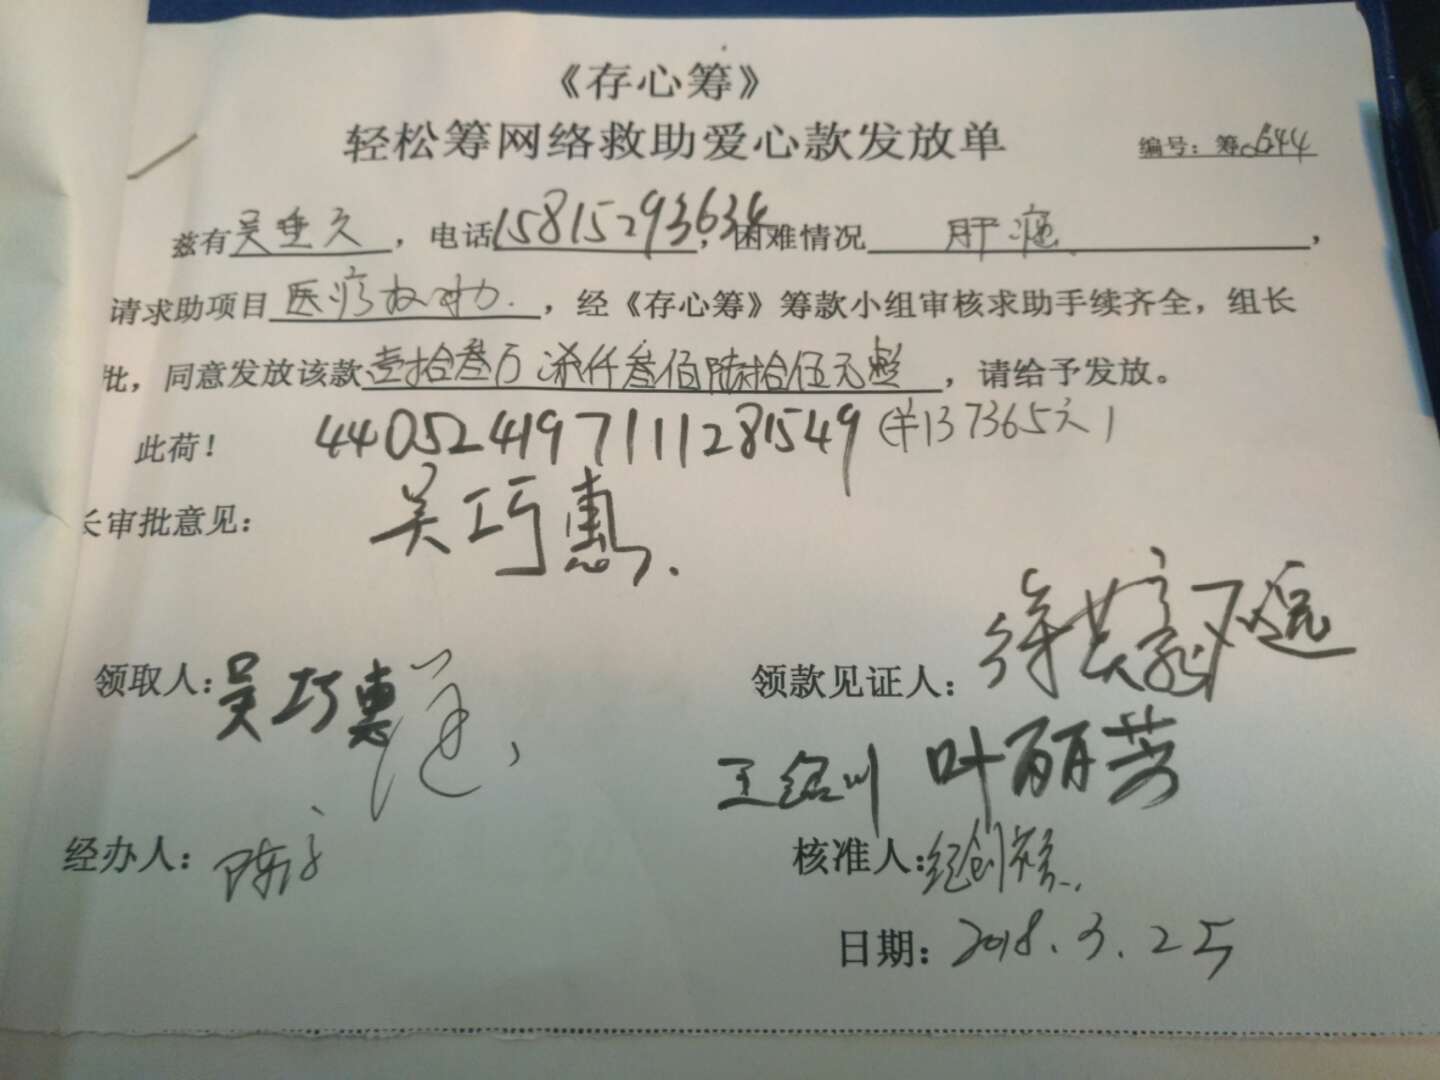 《存心筹》
轻松筹网络救助爱心款发放单
编号:筹0644
兹有吴垂久,电话15815293634,困难情况肝癌,
请求助项目医疗救助,经《存心筹》筹款小组审核求助手续齐全,组长
批,同意发放该款壹拾叁万柒仟叁佰陆拾伍元整,请给予发放。
此荷! 440524197111281549 (¥137365元)
长审批意见: 吴巧惠
领取人:吴巧惠
领款见证人:
王铭川 叶丽芳
经办人:
核准人:
日期:2018.3.25